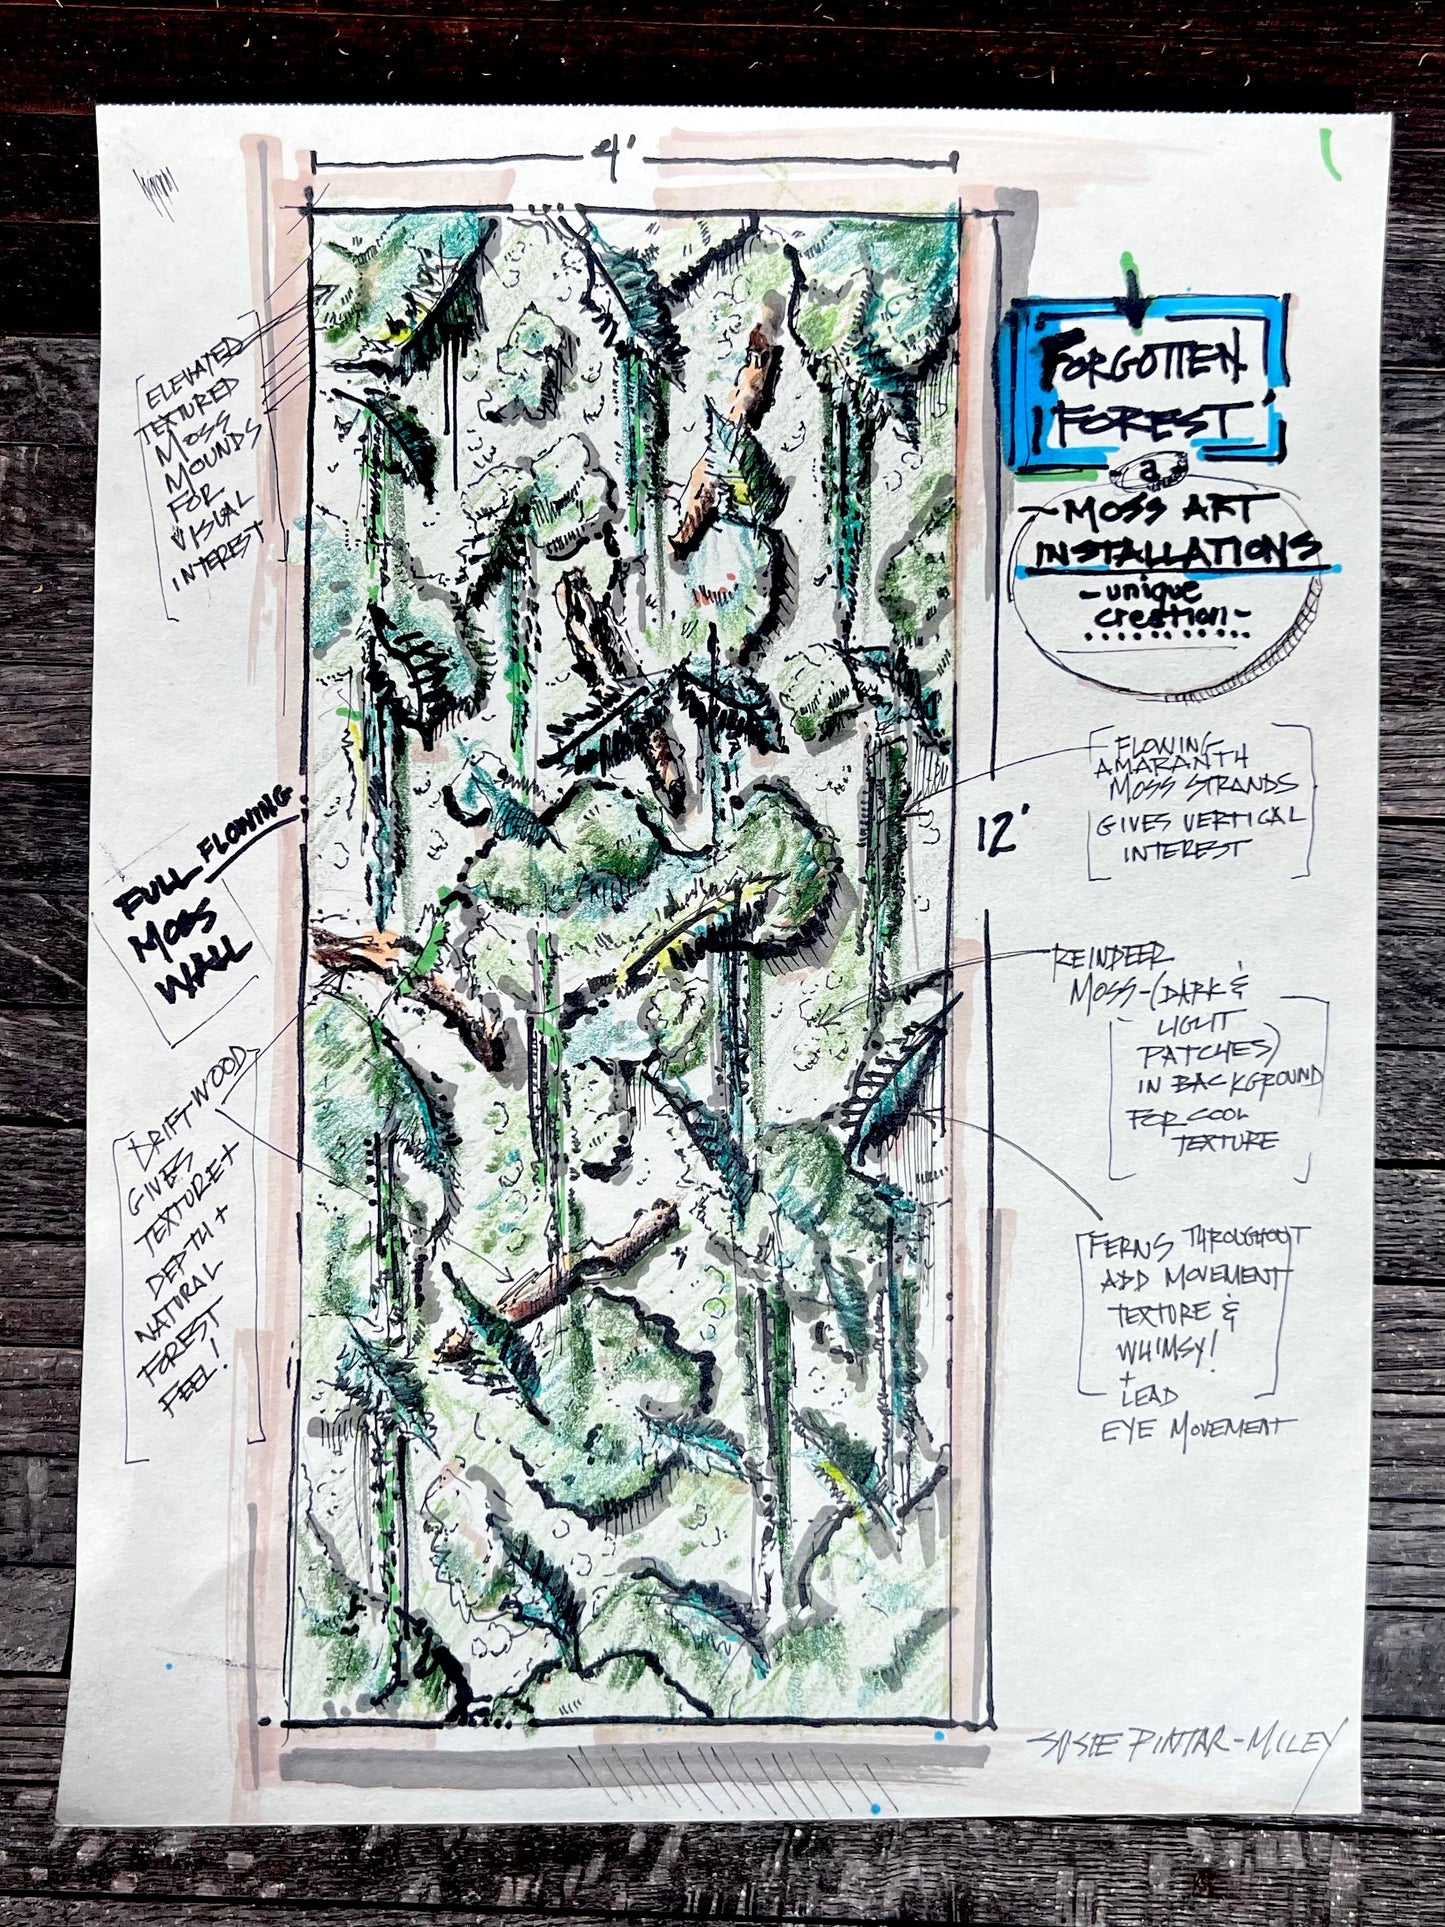 4'
FORGOTTEN
FOREST
a
~MOSS ART
INSTALLATIONS
-unique
creation-
ELEVATED
TEXTURED
MOSS
MOUNDS
FOR
VISUAL
INTEREST
FLOWING
AMARANTH
MOSS STRANDS
GIVES VERTICAL
INTEREST
12'
FULL FLOWING
MOSS
WALL
REINDEER
MOSS-(DARK &
LIGHT
PATCHES)
IN BACKGROUND
FOR COOL
TEXTURE
DRIFTWOOD
GIVES
TEXTURE+
DEPTH +
NATURAL
FOREST
FEEL!
FERNS THROUGHOUT
ADD MOVEMENT
TEXTURE &
WHIMSY!
+
LEAD
EYE MOVEMENT
SUSIE PINTAR-MILEY